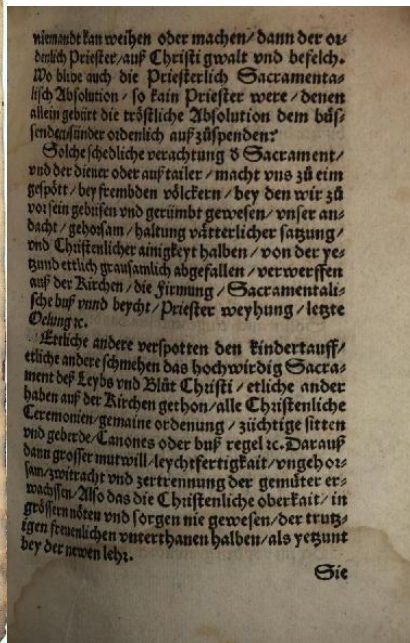 niemandt kan weihen oder machen/ dann der or-
denlich Priester/ auß Christi gwalt vnd befelch.
Wo blibe auch die Priesterlich Sacramenta-
lisch Absolution/ so kain Priester were/ denen
allein gebürt die tröstliche Absolution dem büs-
senden sünder ordenlich auß zůspenden?
Solche schedliche verachtung d̕ Sacrament/
vnd der diener oder auß tailer/ macht vns zů eim
gespött/ bey frembden völckern/ bey den wir zů
vor sein gebrisen vnd gerümbt gewesen/ vnser an-
dacht/ gehorsam/ haltung vätterlicher satzung/
vnd Christenlicher ainigkeyt halben/ von der ye-
tzund ettlich grausamlich abgefallen/ verwerffen
auß der Kirchen/ die Firmung/ Sacramentali-
sche buß vnnd beycht/ Priester weyhung/ letzte
Oelung ꝛc.
Ettliche andere verspotten den kindertauff/
etliche andere schmehen das hochwirdig Sacra-
ment deß Leybs vnd Blůt Christi/ etliche ander
haben auß der Kirchen gethon/ alle Christenliche
Ceremonien/ gemaine ordenung/ züchtige sitten
vnd geberde/ Canones oder buß regel ꝛc. Darauß
dann grosser mutwill/ leychtfertigkait/ vngehor-
sam/ zwitracht vnd zertrennung der gemüter er-
wachssen/ Also das die Christenliche oberkait/ in
grössern nöten vnd sorgen nie gewesen/ der trutz-
igen freuenlichen vnterthanen halben/ als yetzunt
bey der newen lehr.
Sie